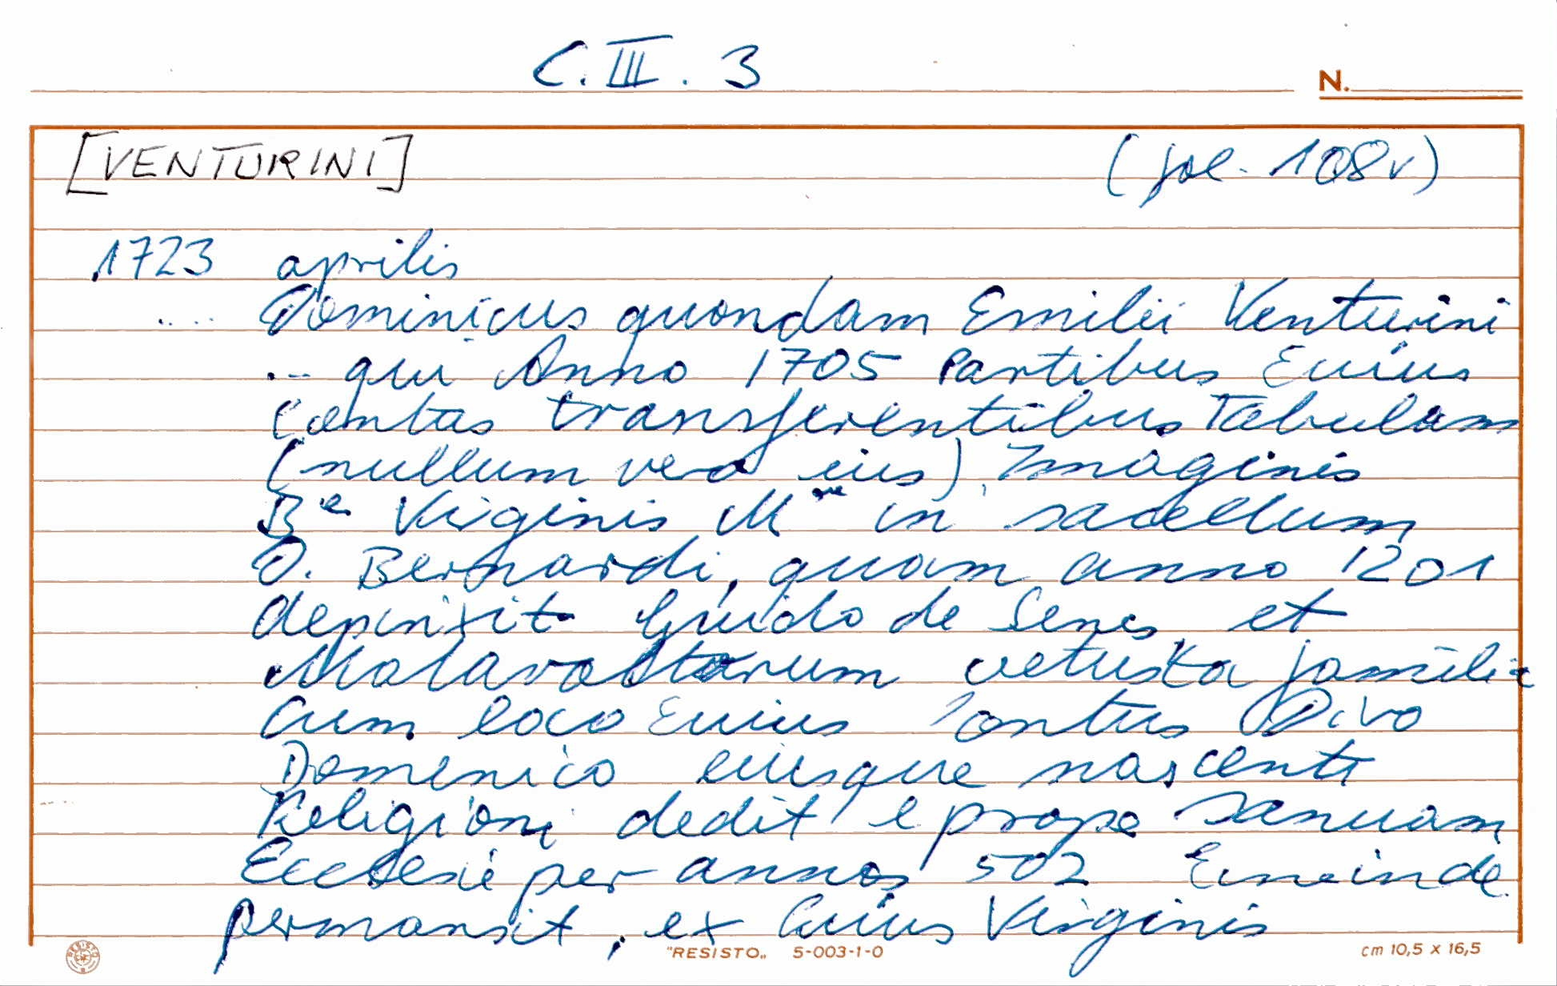 C. III. 3
N.
[VENTURINI] (fol. 108v)
1723 aprilis
.... Dominicus quondam Emilii Venturini
... qui Anno 1705 Partibus
transferentibus Tabulam
(nullum vero eius) Imaginis
Be Virginis M in sacellum
D. Bernardi, quam anno 1201
depinxit Guido de Senes et
Malavoltarum vetusta familia
cum loco Divo
Domenico eiusque nascenti
Religioni dedit e prope Ianuam
Ecclesie per annos 502
permansit, ex cuius Virginis
"RESISTO„ 5-003-1-0 cm 10,5 x 16,5